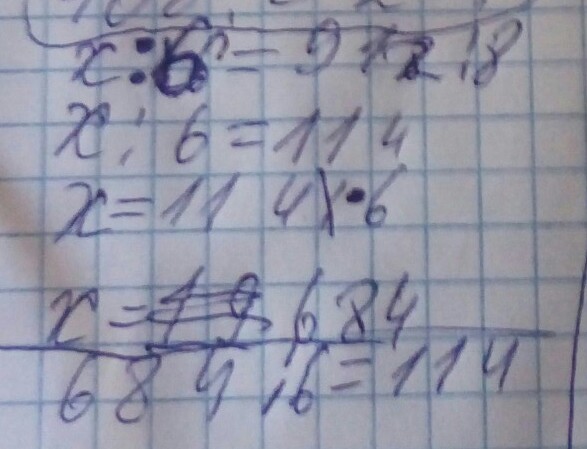 x : 6 = 912 : 8
x : 6 = 114
x = 114 · 6
x = 684
684 : 6 = 114